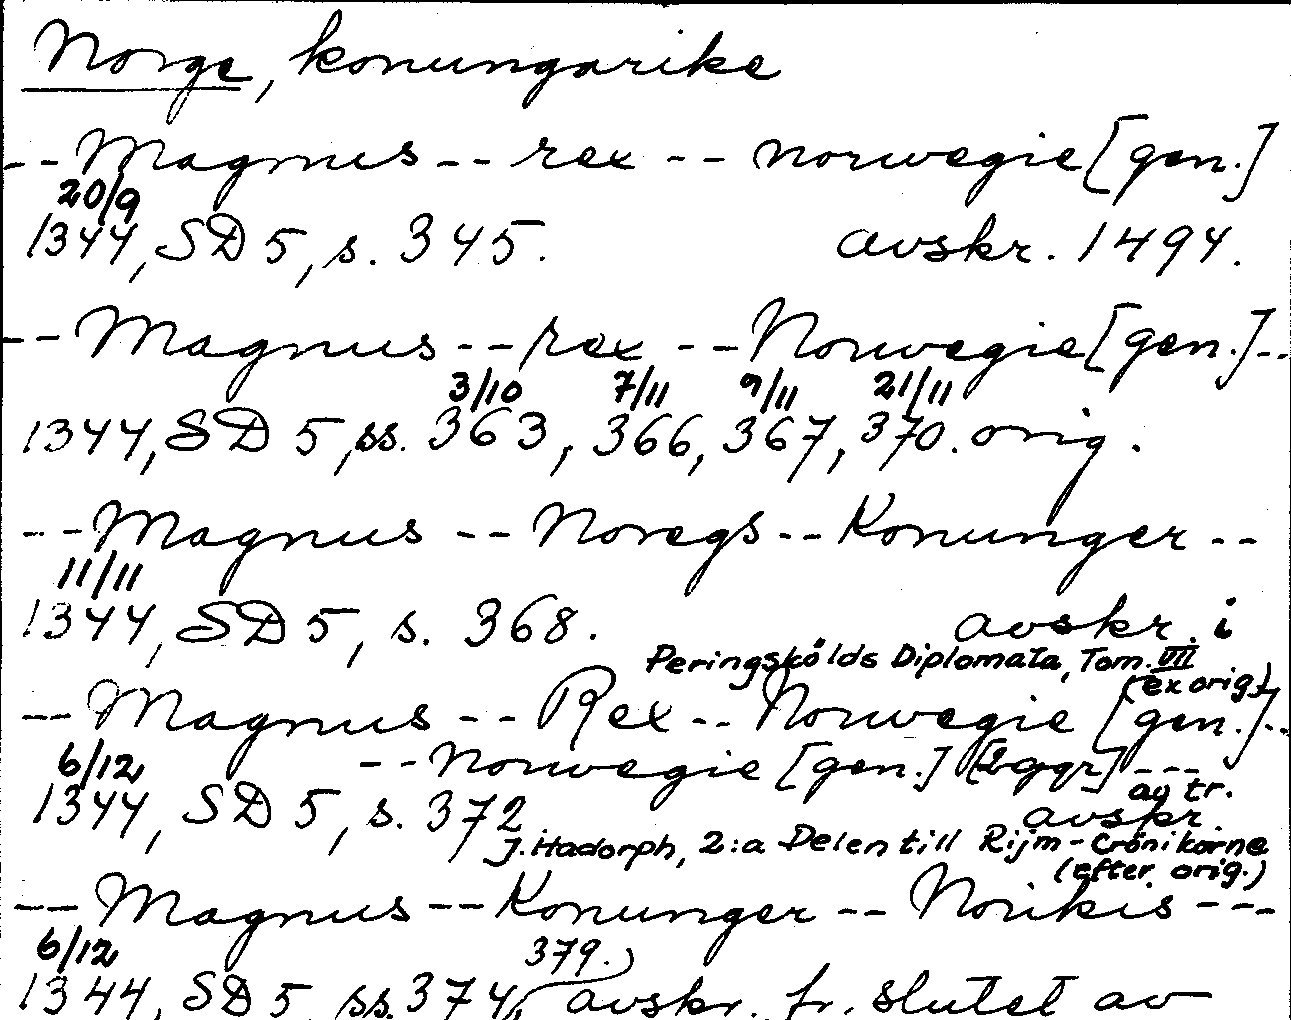 Norge, konungarike
--Magnus--rex--norwegie [gen.]
20/9
1344, SD 5, s. 345. avskr. 1494.
--Magnus--rex--Norwegie [gen.]--
3/10 7/11 9/11 21/11
1344, SD 5, ss. 363, 366, 367, 370. orig.
--Magnus--Noregs--Konunger--
11/11
1344, SD 5, s. 368. avskr. i
Peringskölds Diplomata, Tom. VII
(ex orig.)
--Magnus--Rex--Norwegie [gen.]--
6/12 --Norwegie [gen.] [2 ggr] ---
av tr.
1344, SD 5, s. 372 avskr.
J. Hadorph, 2:a Delen till Rijm-Crönikorne
(efter orig.)
--Magnus--Konunger--Norikis---
6/12 379.
1344, SD 5, ss. 374, avskr. fr. slutet av